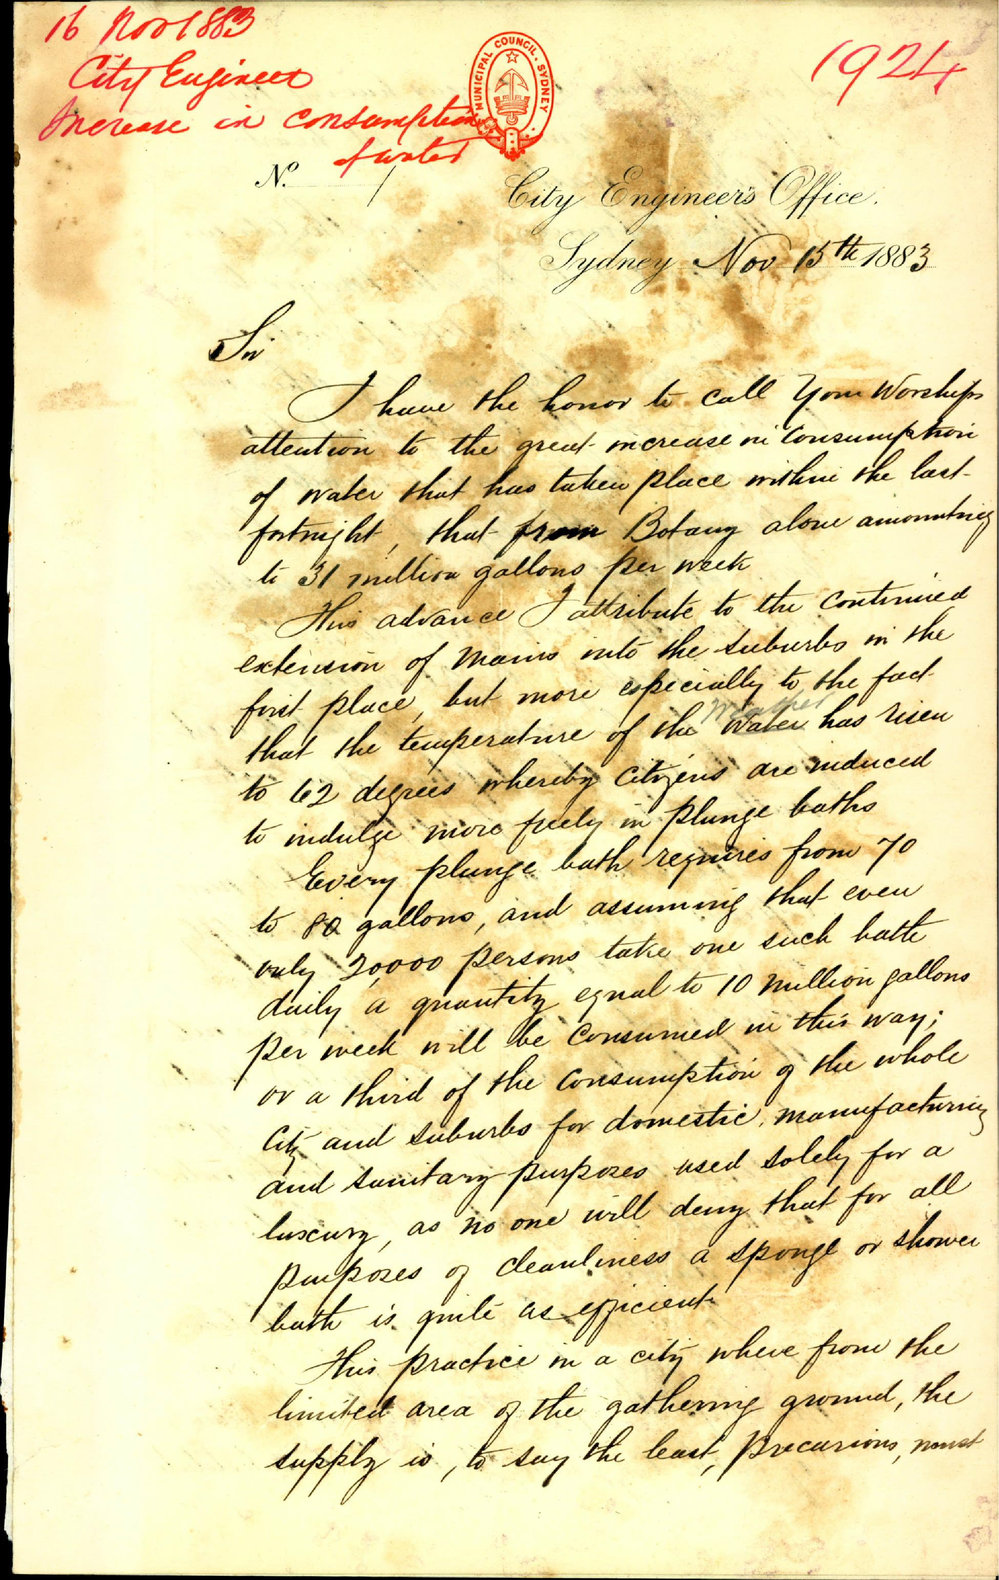 16 Nov 1883
City Engineer
Increase in consumption
of water
1924
MUNICIPAL COUNCIL. SYDNEY
No.
City Engineer's Office.
Sydney Nov 15th 1883
Sir
I have the honor to call Your Worships
attention to the great increase in consumption
of water that has taken place within the last
fortnight, that from Botany alone amounting
to 31 million gallons per week
This advance I attribute to the continued
extension of mains into the suburbs in the
first place, but more especially to the fact
Weather
that the temperature of the water has risen
to 62 degrees whereby citizens are induced
to indulge more freely in plunge baths
Every plunge bath requires from 70
to 80 gallons, and assuming that even
only 20000 persons take one such bath
daily a quantity equal to 10 million gallons
per week will be consumed in this way;
or a third of the consumption of the whole
City and suburbs for domestic, manufacturing
and sanitary purposes used solely for a
luxury, as no one will deny that for all
purposes of cleanliness a sponge or shower
bath is quite as efficient
This practice in a city where from the
limited area of the gathering ground, the
supply is, to say the least, precarious, must